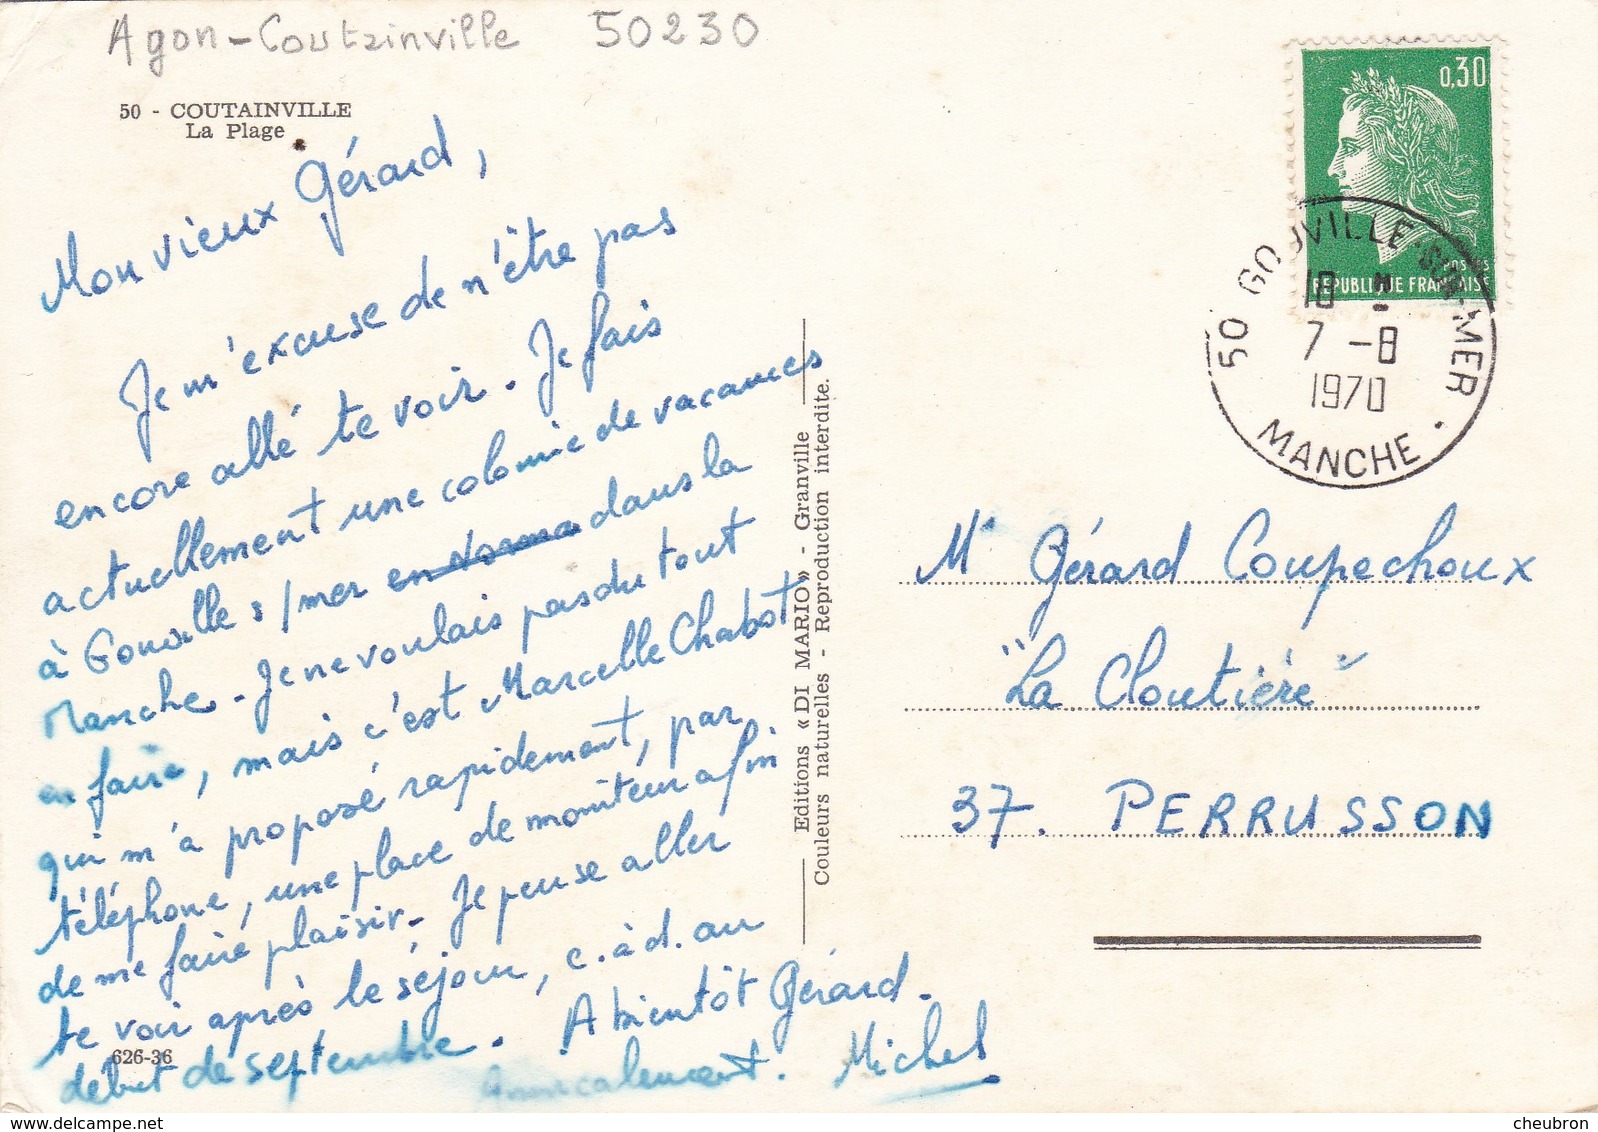 Agon-Coutainville 50230
50 - COUTAINVILLE
La Plage
Mon vieux Gérard,
Je m'excuse de n'être pas
encore allé te voir. Je fais
actuellement une colonie de vacances
à Gouville s/mer en Norma dans la
Manche. Je ne voulais pas du tout
en faire, mais c'est Marcelle Chabot
qui m'a proposé rapidement, par
téléphone, une place de moniteur afin
de me faire plaisir. Je pense aller
te voir après le séjour, c. à d. au
début de septembre. A bientôt Gérard.
Amicalement. Michel
626-36
Editions « DI MARIO » - Granville
Couleurs naturelles - Reproduction interdite.
0,30
POSTES
REPUBLIQUE FRANÇAISE
50 GOUVILLE-SUR-MER
10 H
7 -8
1970
MANCHE
Mr Gérard Coupechoux
"La Cloutière"
37. PERRUSSON
cheubron
delcampe.net